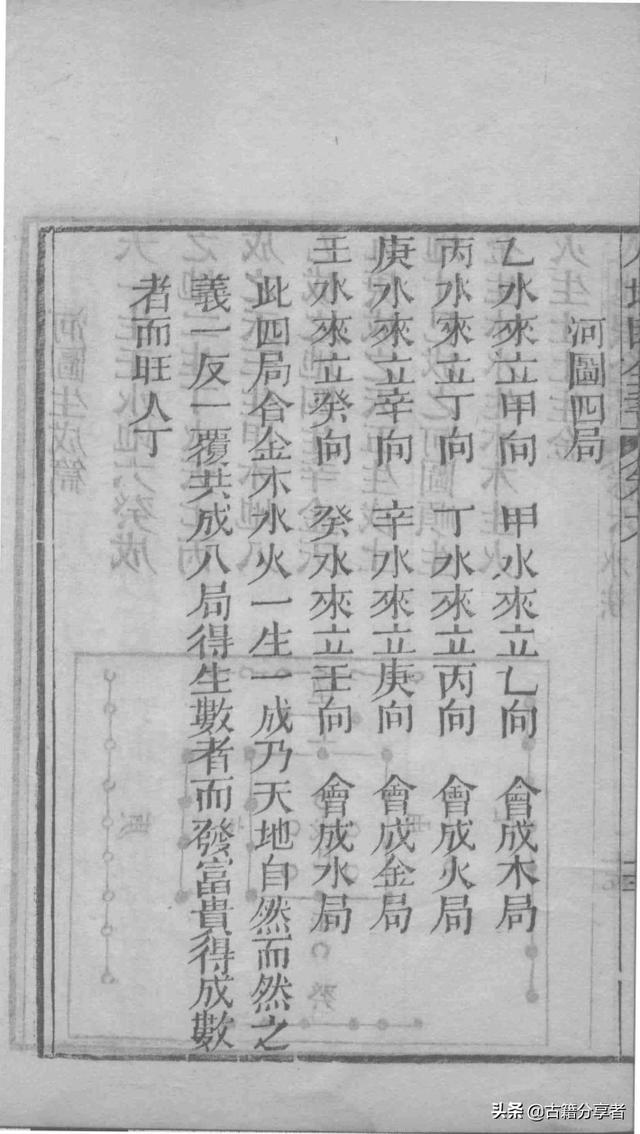 河圖四局
乙水來立甲向　甲水來立乙向　會成木局
丙水來立丁向　丁水來立丙向　會成火局
庚水來立辛向　辛水來立庚向　會成金局
壬水來立癸向　癸水來立壬向　會成水局
此四局合金木水火一生一成乃天地自然而然之
義一反一覆共成八局得生數者而發富貴得成數
者而旺人丁
头条 @古籍分享者